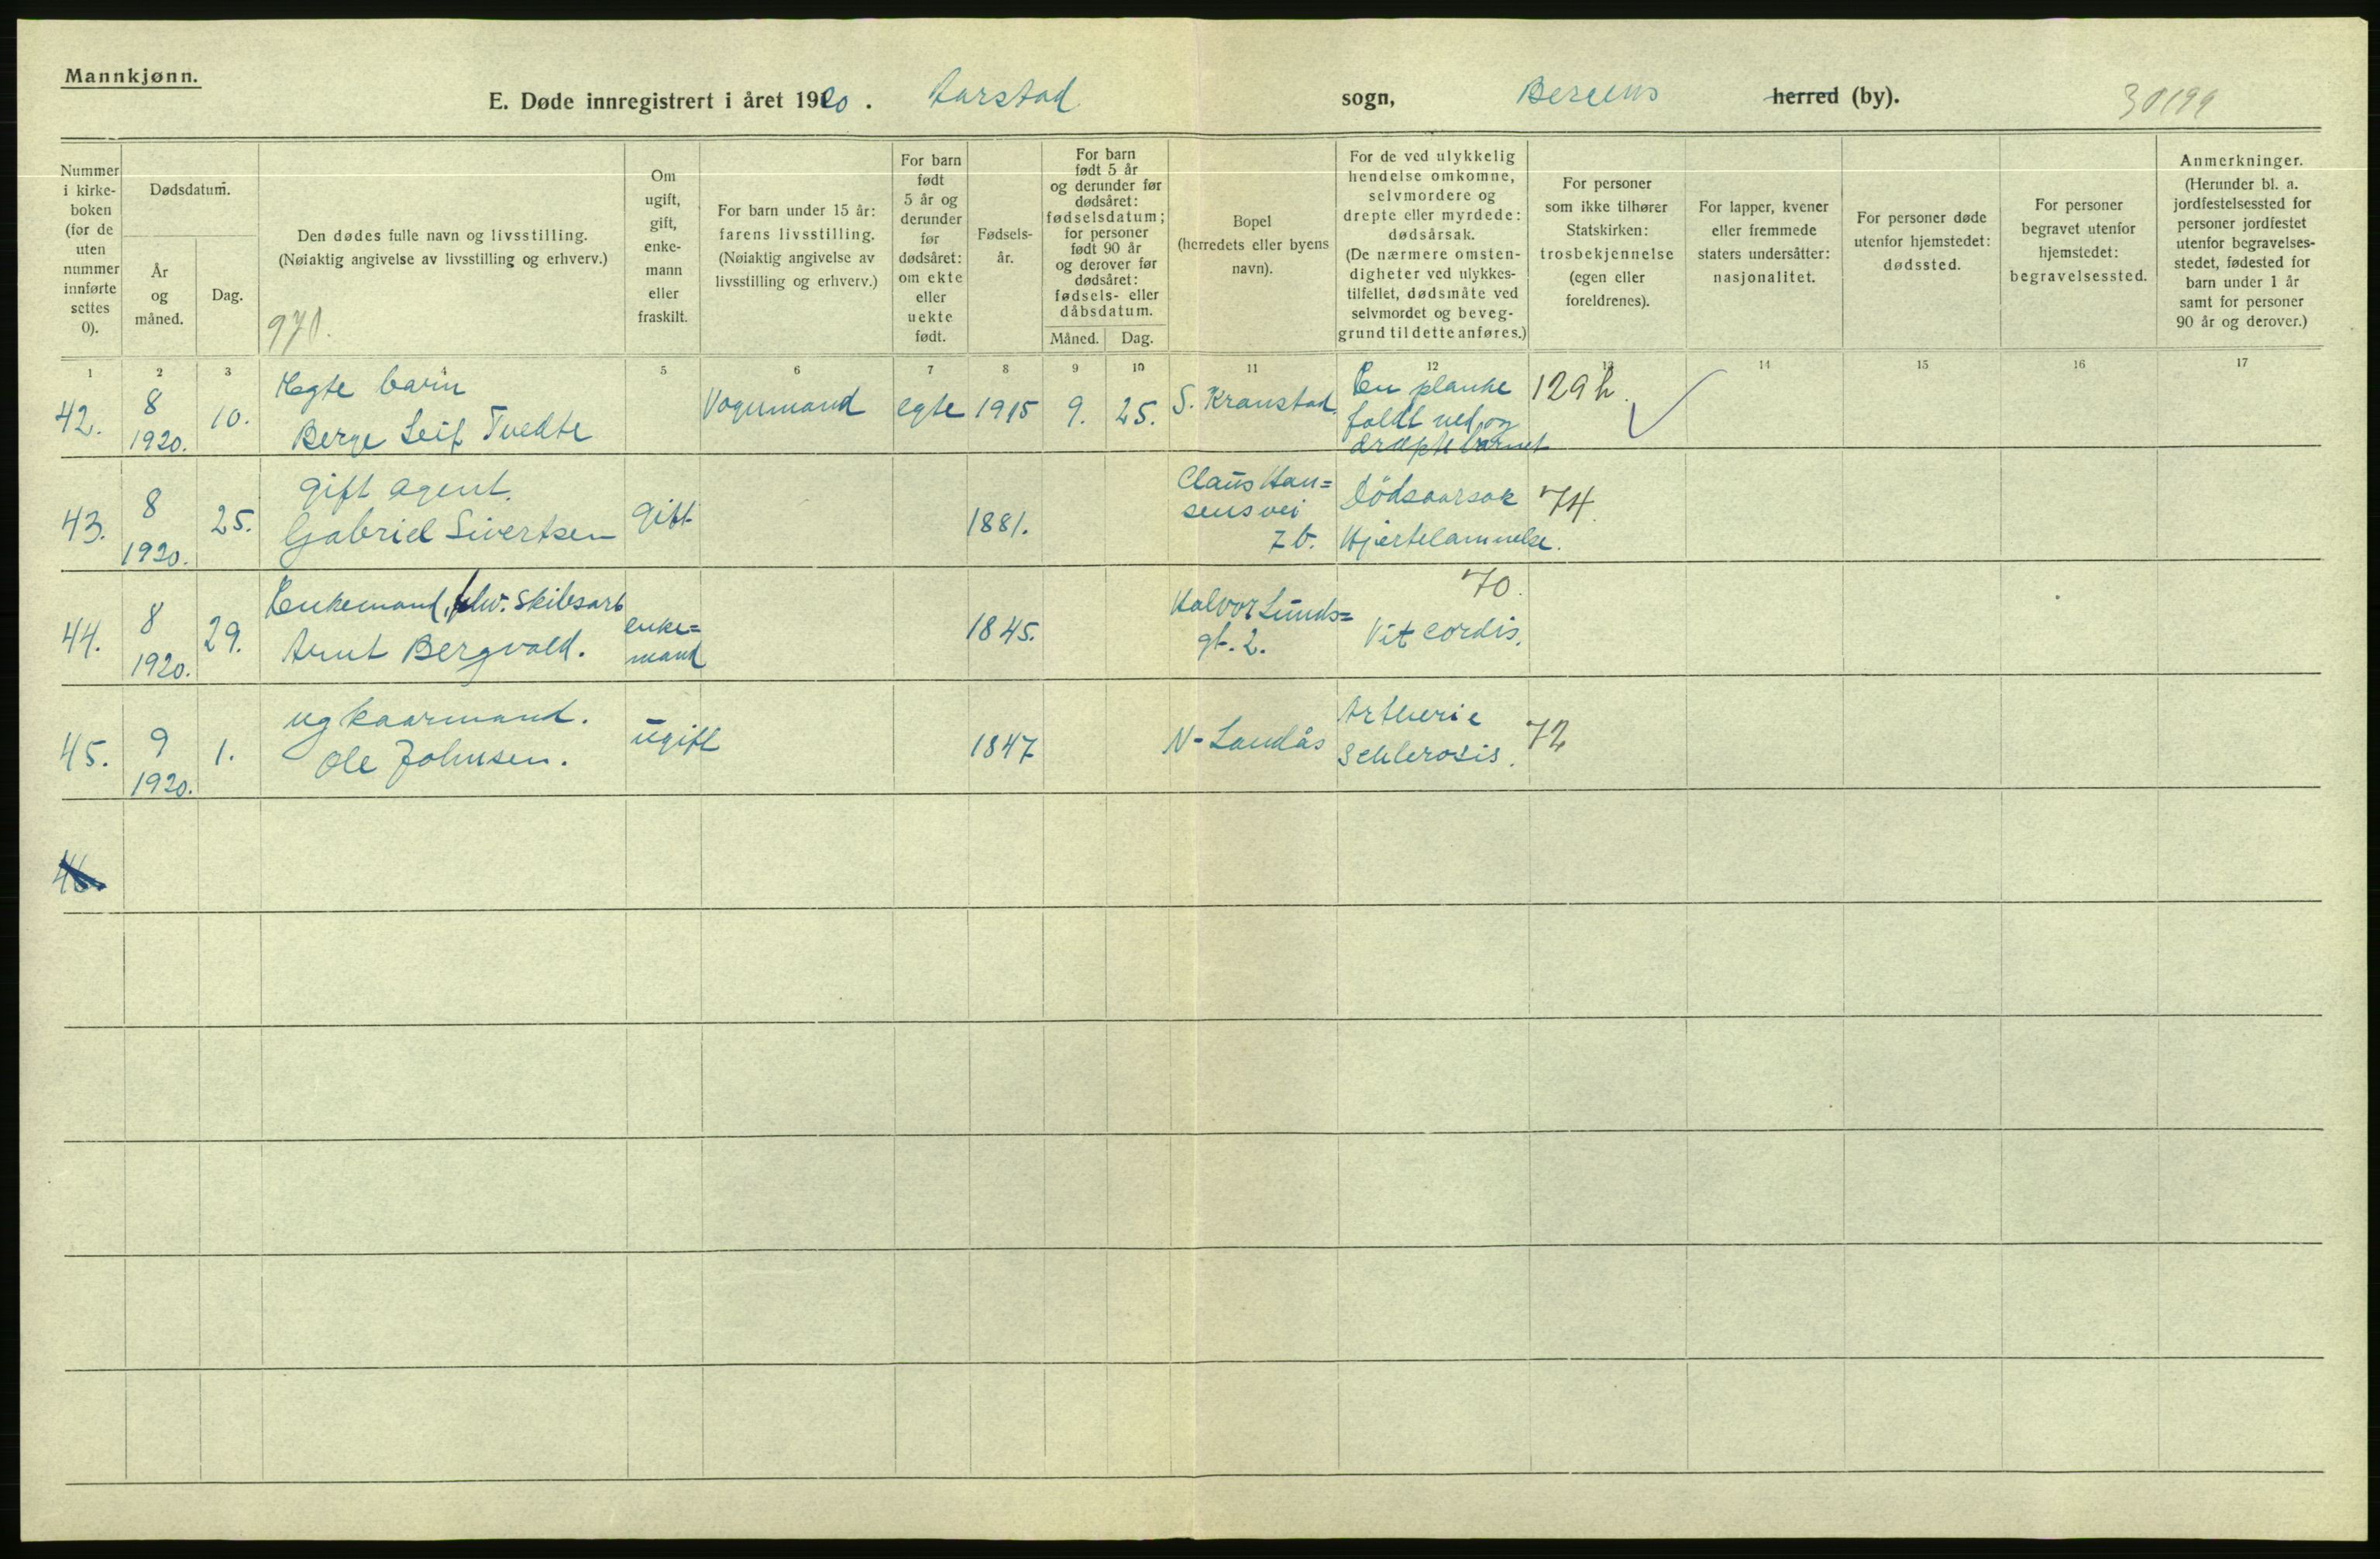 Mannkjønn.
E. Døde innregistrert i året 1920. Aarstad sogn, Bergens herred (by). 30199
Nummer i kirke-boken (for de uten nummer innførte settes 0).
Dødsdatum.
År og måned.
Dag.
Den dødes fulle navn og livsstilling.
(Nøiaktig angivelse av livsstilling og erhverv.)
970.
Om ugift, gift, enke-mann eller fraskilt.
For barn under 15 år: farens livsstilling.
(Nøiaktig angivelse av livsstilling og erhverv.)
For barn født 5 år og derunder før dødsåret: om ekte eller uekte født.
Fødsels-år.
For barn født 5 år og derunder før dødsåret: fødselsdatum; for personer født 90 år og derover før dødsåret: fødsels- eller dåbsdatum.
Måned. Dag.
Bopel
(herredets eller byens navn).
For de ved ulykkelig hendelse omkomne, selvmordere og drepte eller myrdede: dødsårsak.
(De nærmere omsten-digheter ved ulykkes-tilfellet, dødsmåte ved selvmordet og beveg-grund til dette anføres.)
For personer som ikke tilhører Statskirken: trosbekjennelse (egen eller foreldrenes).
For lapper, kvener eller fremmede staters undersåtter: nasjonalitet.
For personer døde utenfor hjemstedet: dødssted.
For personer begravet utenfor hjemstedet: begravelsessted.
Anmerkninger.
(Herunder bl. a. jordfestelsessted for personer jordfestet utenfor begravelses-stedet, fødested for barn under 1 år samt for personer 90 år og derover.)
1 2 3 4 5 6 7 8 9 10 11 12 13 14 15 16 17
42. 8 1920. 10. Ægte barn
Berge Leif Tvedte
Vognmand egte 1915 9. 25. S. Kronstad. En planke
faldt ned og
dræpte barnet
129 h.
43. 8 1920. 25. gift agent.
Gabriel Sivertsen
gift 1881. Claus Han=
sens vei
7 b. Dödsaarsak
Hjertelammelse.
74.
44. 8 1920. 29. Enkemand, skibsarb
Arnt Bergvald.
enke=
mand
1845. Halvor Lunds=
gt. 2. 70.
Vit cordis.
45. 9 1920. 1. ug kaarmand.
Ole Johnsen.
ugift 1847 N-Landås Artherie
Schlerosis. 72
46.